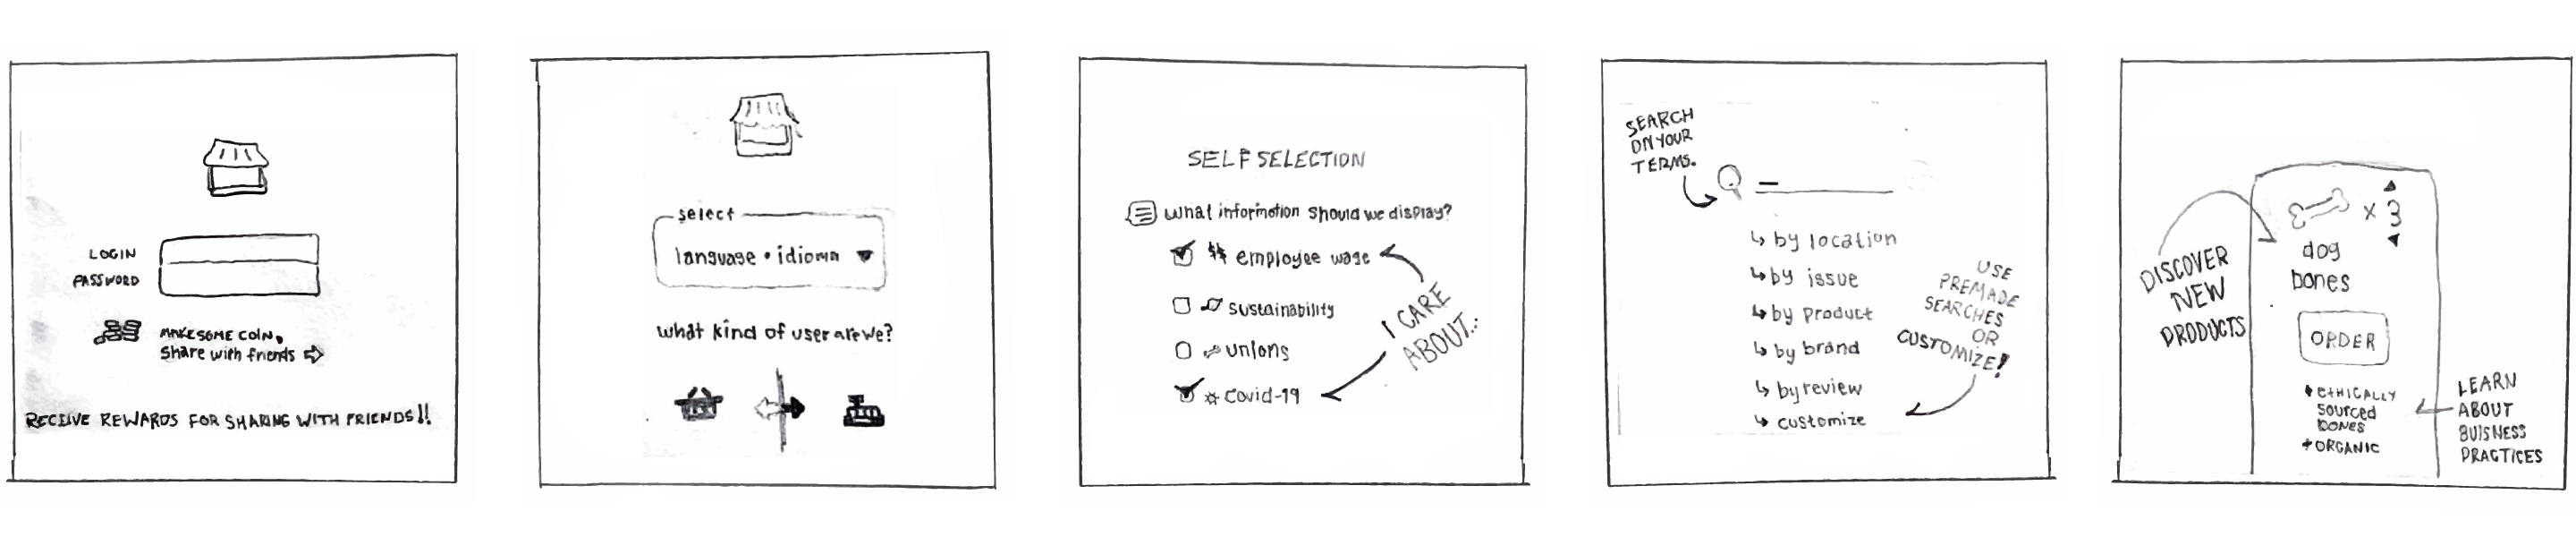 LOGIN
PASSWORD
MAKE SOME COIN,
share with friends
RECEIVE REWARDS FOR SHARING WITH FRIENDS!!
select
language • idioma
what kind of user are we?
SELF SELECTION
what information should we display?
$$ employee wage
sustainability
unions
covid-19
I CARE
ABOUT...
SEARCH
ON YOUR
TERMS.
by location
by issue
by product
by brand
by review
customize
USE
PREMADE
SEARCHES
OR
CUSTOMIZE!
DISCOVER
NEW
PRODUCTS
x 3
dog
bones
ORDER
ETHICALLY
sourced
bones
ORGANIC
LEARN
ABOUT
BUISNESS
PRACTICES